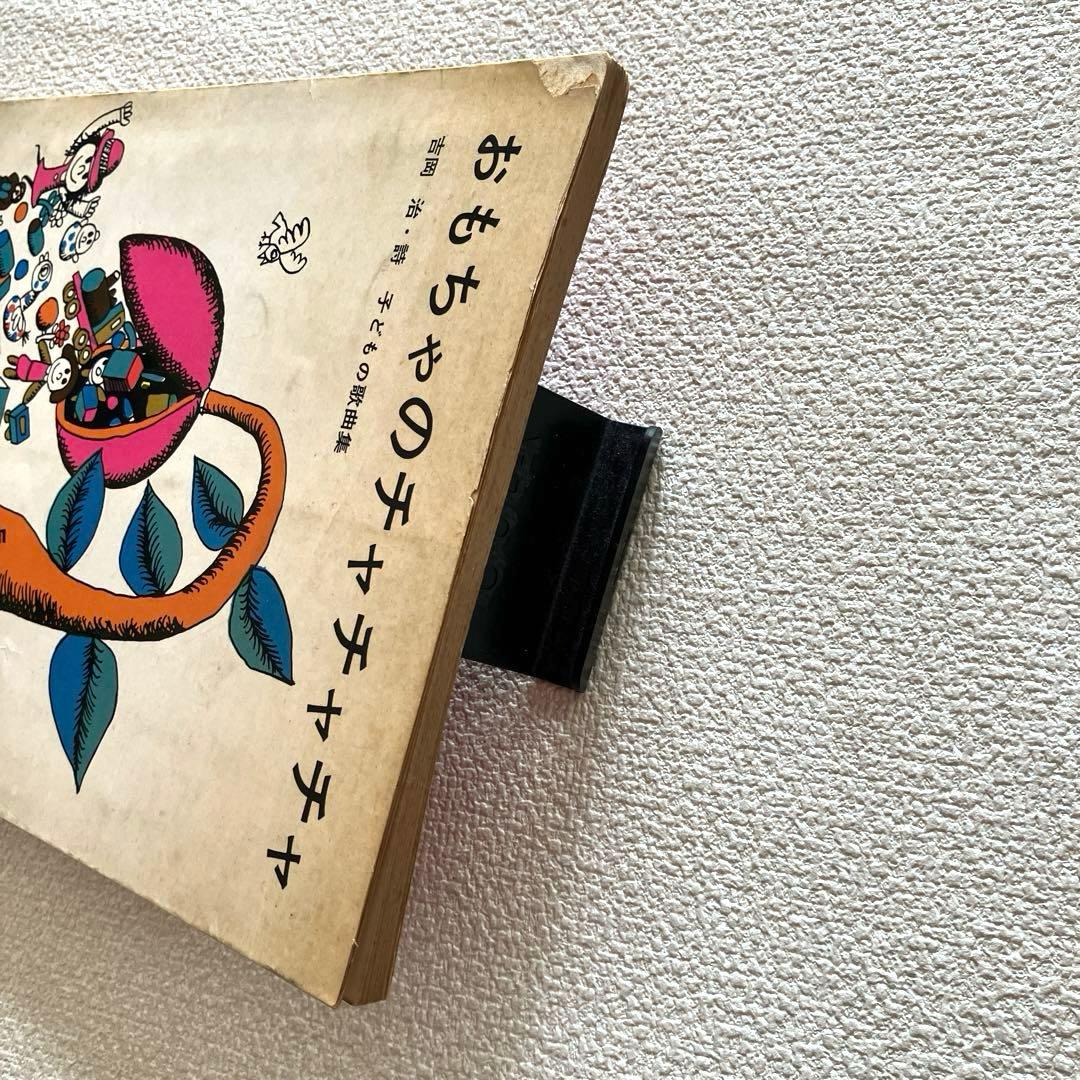 おもちゃのチャチャチャ
吉岡 治・詩 子どもの歌曲集